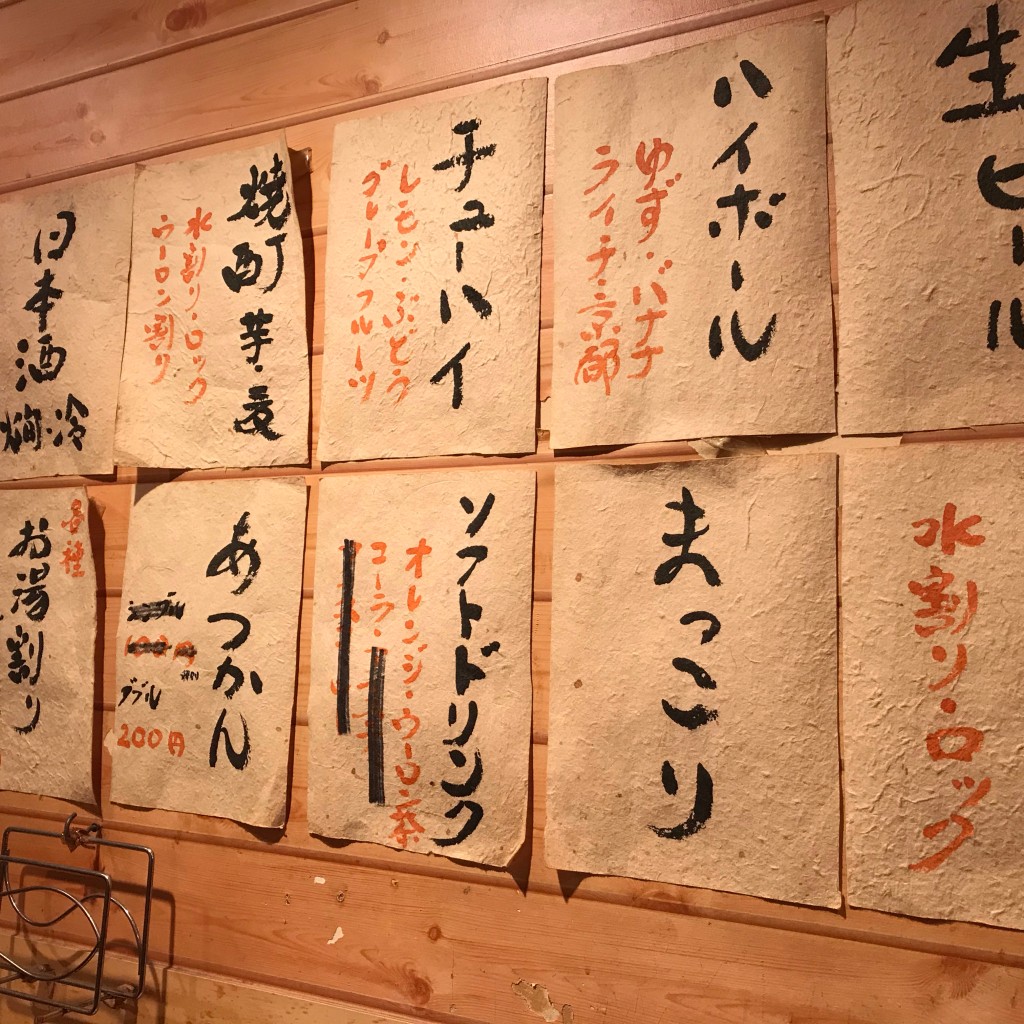 生ビール
ハイボール
ゆず・バナナ
ライチ・京都
チューハイ
レモン・ぶどう
グレープフルーツ
焼酎 芋・麦
水割り・ロック
ウーロン割り
日本酒
冷
燗
水割り・ロック
まっこり
ソフトドリンク
オレンジ・ウーロン茶
コーラ・
あつかん
ダブル
200円
各種
お湯割り